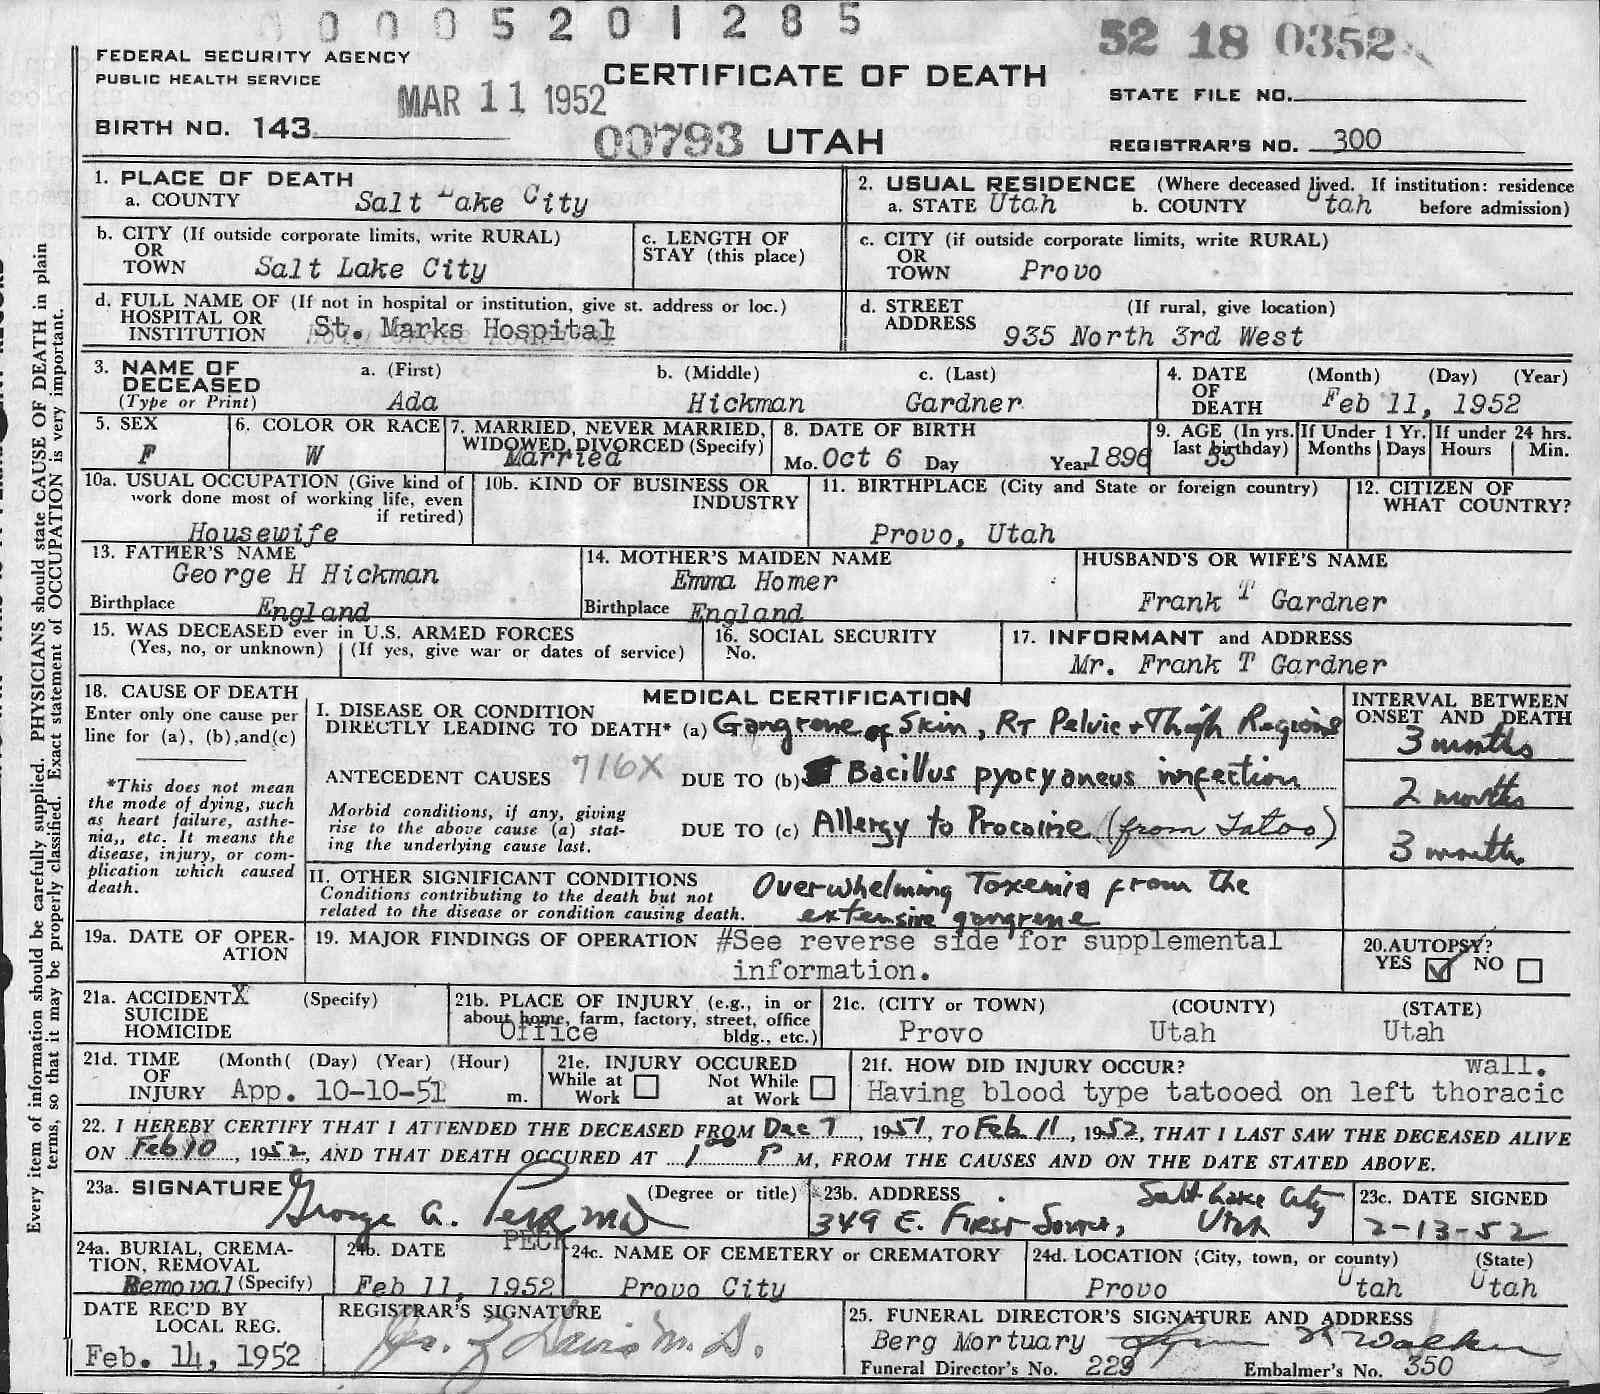 0 0 0 0 5 2 0 1 2 8 5
52 18 0352
FEDERAL SECURITY AGENCY
PUBLIC HEALTH SERVICE
MAR 11 1952
CERTIFICATE OF DEATH
STATE FILE NO.
BIRTH NO. 143
00793 UTAH
REGISTRAR'S NO. 300
Every item of information should be carefully supplied. PHYSICIANS should state CAUSE OF DEATH in plain
terms, so that it may be properly classified. Exact statement of OCCUPATION is very important.
1. PLACE OF DEATH
a. COUNTY Salt Lake City
2. USUAL RESIDENCE (Where deceased lived. If institution: residence
a. STATE Utah b. COUNTY Utah before admission)
b. CITY (If outside corporate limits, write RURAL)
OR
TOWN Salt Lake City
c. LENGTH OF
STAY (this place)
c. CITY (if outside corporate limits, write RURAL)
OR
TOWN Provo
d. FULL NAME OF (If not in hospital or institution, give st. address or loc.)
HOSPITAL OR
INSTITUTION St. Marks Hospital
d. STREET (If rural, give location)
ADDRESS 935 North 3rd West
3. NAME OF
DECEASED
(Type or Print)
a. (First) b. (Middle) c. (Last)
Ada Hickman Gardner
4. DATE (Month) (Day) (Year)
OF
DEATH Feb 11, 1952
5. SEX
F
6. COLOR OR RACE
W
7. MARRIED, NEVER MARRIED,
WIDOWED, DIVORCED (Specify)
Married
8. DATE OF BIRTH
Mo. Oct 6 Day Year 1896
9. AGE (In yrs.
last birthday)
55
If Under 1 Yr.
Months Days
If under 24 hrs.
Hours Min.
10a. USUAL OCCUPATION (Give kind of
work done most of working life, even
if retired)
Housewife
10b. KIND OF BUSINESS OR
INDUSTRY
11. BIRTHPLACE (City and State or foreign country)
Provo, Utah
12. CITIZEN OF
WHAT COUNTRY?
13. FATHER'S NAME
George H Hickman
Birthplace England
14. MOTHER'S MAIDEN NAME
Emma Homer
Birthplace England
HUSBAND'S OR WIFE'S NAME
Frank T Gardner
15. WAS DECEASED ever in U.S. ARMED FORCES
(Yes, no, or unknown) (If yes, give war or dates of service)
16. SOCIAL SECURITY
No.
17. INFORMANT and ADDRESS
Mr. Frank T Gardner
18. CAUSE OF DEATH
Enter only one cause per
line for (a), (b),and(c)
*This does not mean
the mode of dying, such
as heart failure, asthe-
nia,, etc. It means the
disease, injury, or com-
plication which caused
death.
MEDICAL CERTIFICATION
I. DISEASE OR CONDITION
DIRECTLY LEADING TO DEATH* (a) Gangrene of Skin, RT Pelvic + Thigh Regions
ANTECEDENT CAUSES 716X DUE TO (b) Bacillus pyocyaneus infection
Morbid conditions, if any, giving
rise to the above cause (a) stat-
ing the underlying cause last.
DUE TO (c) Allergy to Procaine (from Tatoo)
INTERVAL BETWEEN
ONSET AND DEATH
3 months
2 months
3 months
II. OTHER SIGNIFICANT CONDITIONS
Conditions contributing to the death but not
related to the disease or condition causing death.
Overwhelming Toxemia from the
extensive gangrene
19a. DATE OF OPER-
ATION
19. MAJOR FINDINGS OF OPERATION #See reverse side for supplemental
information.
20. AUTOPSY?
YES ☑ NO ☐
21a. ACCIDENT X (Specify)
SUICIDE
HOMICIDE
21b. PLACE OF INJURY (e.g., in or
about home, farm, factory, street, office
bldg., etc.)
Office
21c. (CITY or TOWN) (COUNTY) (STATE)
Provo Utah Utah
21d. TIME (Month( (Day) (Year) (Hour)
OF
INJURY App. 10-10-51 m.
21e. INJURY OCCURED
While at Work ☐ Not While at Work ☐
21f. HOW DID INJURY OCCUR? wall.
Having blood type tatooed on left thoracic
22. I HEREBY CERTIFY THAT I ATTENDED THE DECEASED FROM Dec 7, 1951, TO Feb 11, 1952, THAT I LAST SAW THE DECEASED ALIVE
ON Feb 10, 1952, AND THAT DEATH OCCURED AT 1 P M, FROM THE CAUSES AND ON THE DATE STATED ABOVE.
23a. SIGNATURE (Degree or title)
George A. Peck MD
PECK
23b. ADDRESS Salt Lake City
349 E. First South, Utah
23c. DATE SIGNED
2-13-52
24a. BURIAL, CREMA-
TION, REMOVAL
Removal (Specify)
24b. DATE
Feb 11, 1952
24c. NAME OF CEMETERY or CREMATORY
Provo City
24d. LOCATION (City, town, or county) (State)
Provo Utah Utah
DATE REC'D BY
LOCAL REG.
Feb. 14, 1952
REGISTRAR'S SIGNATURE
Davis M. D.
25. FUNERAL DIRECTOR'S SIGNATURE AND ADDRESS
Berg Mortuary
Funeral Director's No. 229 Embalmer's No. 350